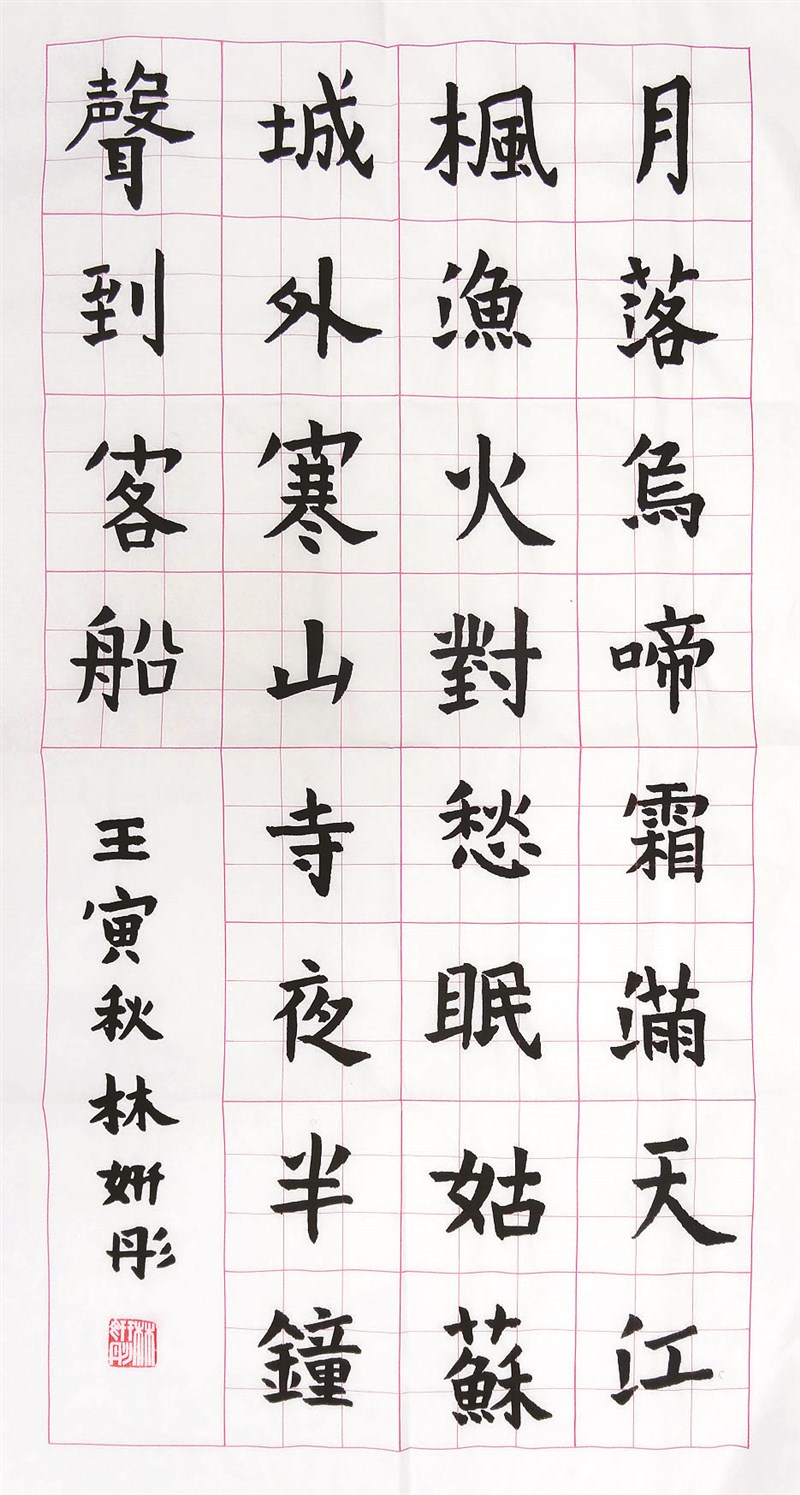 月落烏啼霜滿天江
楓漁火對愁眠姑蘇
城外寒山寺夜半鐘
聲到客船
壬寅秋林妍彤
林妍彤